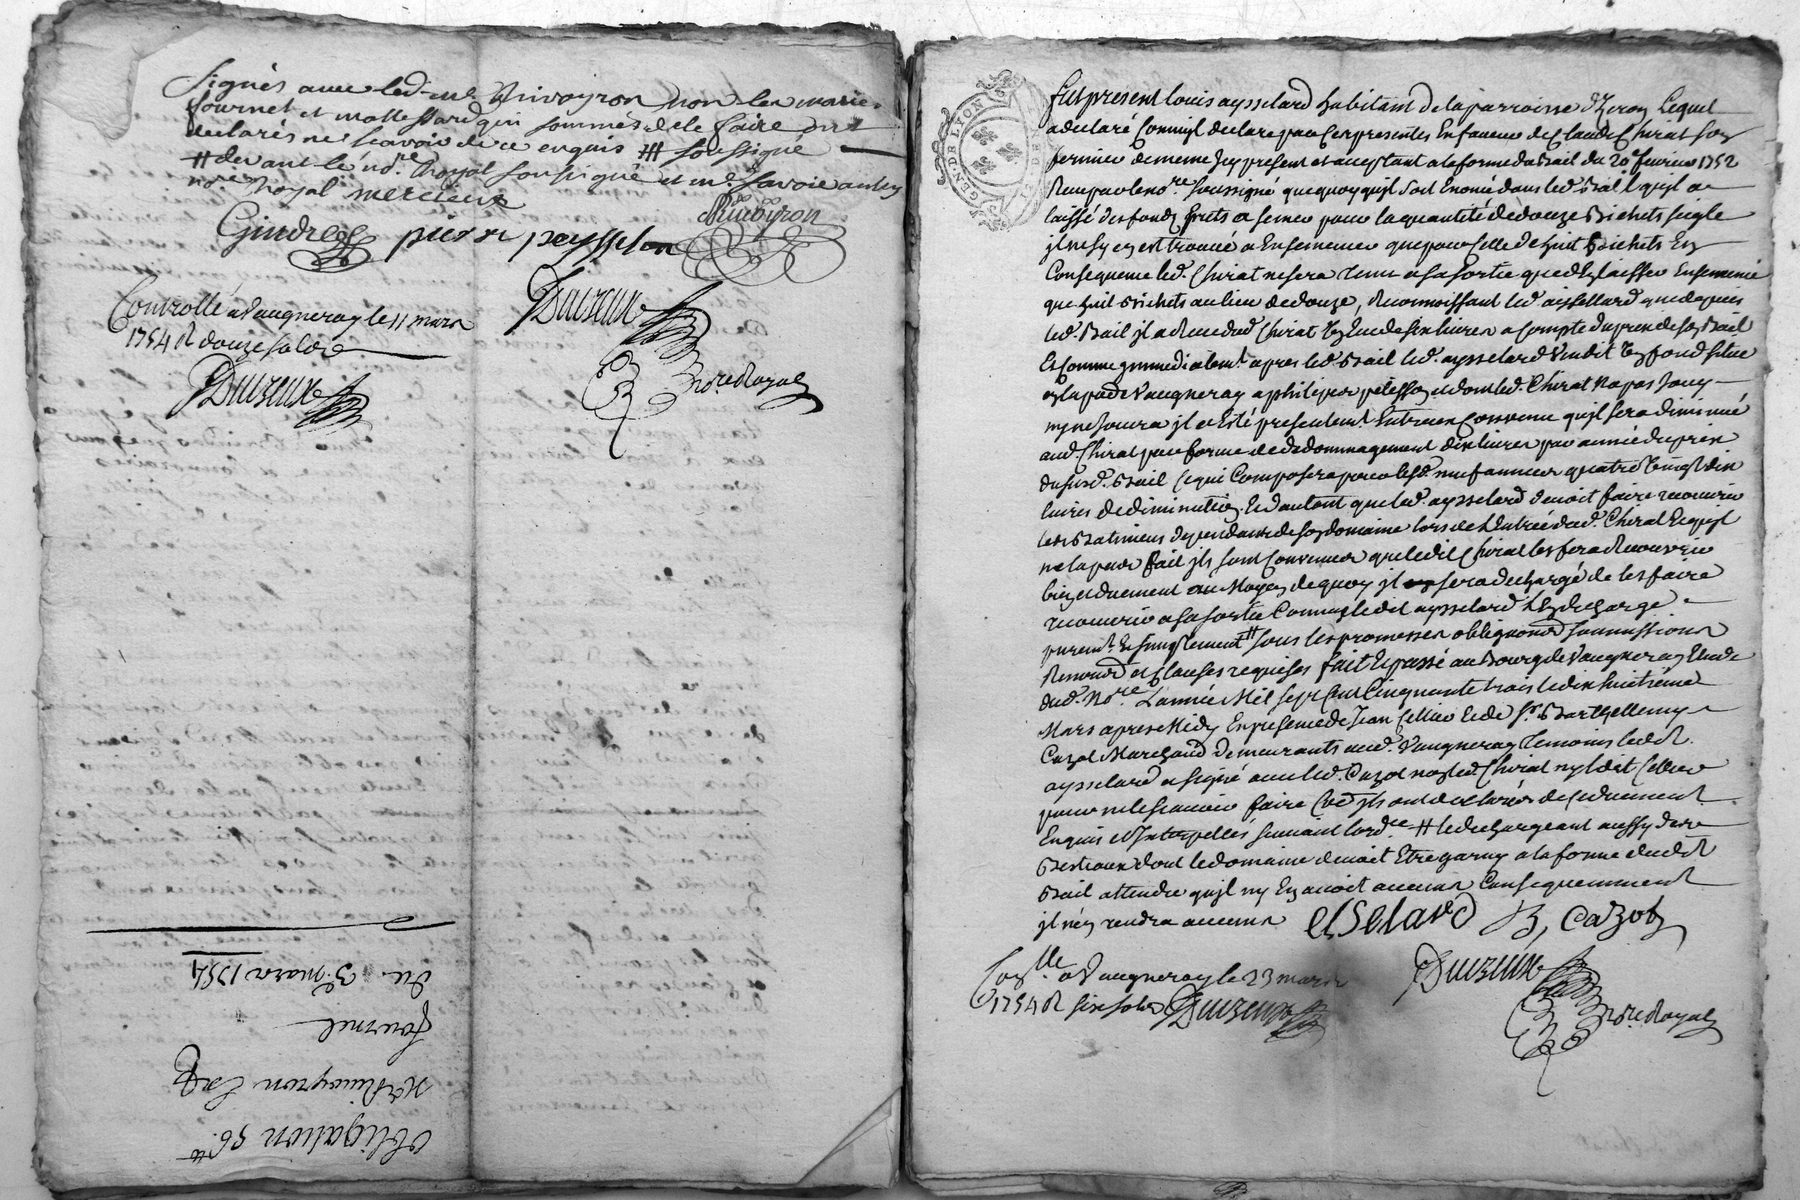 Signés avec led. me Rivoyron non les mariés
fournel et mollessard qui sommés de le faire ont
declarés ne scavoir de ce enquis ## soussigné
# devant le no.re Royal soussigné et me. Savoie aussy
no.re Royal mercieux
Gindre pierre peysselon Rivoyron
Controllé a Vaugneray le 11 mars
1754 R douze sols
Duizeux
Duizeux
no.re Royal
Obligation 96.tt
Me Rivoyron
fournel
du 3e. mars 1754
GEN. DE LYON
fut present Louis aysselard habitant de la parroisse d'Izeron Lequel
a declaré Comme il declare par Ces presentes En faveur de Claude Chirat son
fermier de meme Icy present et acceptant a la forme du Bail du 20e fevrier 1752
Receu par le no.re Soussigné que quoy qu'il Soit Enoncé dans led. Bail qu'il a
laissé des fonds prets a semer pour la quantité de douze Bichets seigle
il ne s'y en est trouvé a Ensemencer que pour Celle de huit Bichets En
Consequence led. Chirat ne sera tenu a sa sortie que d'En laisser Ensemencé
que huit Bichets au lieu de douze, Reconnoissant led. aysselard que depuis
led. Bail il a Receu dud. Chirat la somme de six livres a compte du prix de son Bail
Et comme immediatem.t apres led. Bail led. aysselard Vendit un fond situé
en la par. de Vaugneray a philipes pelisson et dont led. Chirat n'a pas Jouy
ny ne Jouira il a Eté presentem.t Entre eux Convenu qu'il sera diminué
aud. Chirat par forme de dedommagement dix livres par année du prix
du susd. Bail Ce qui Composera pour lesd. neuf années quatre Vingt dix
livres de diminution. Et d'autant que led. aysselard devoit faire recouvrir
les Batimens dependants de son domaine lors de l'Entrée dud. Chirat Ce qu'il
n'a pas fait ils sont Convenus que ledit Chirat les fera Recouvrir
bien et duement au Moyen de quoy il sera dechargé de les faire
recouvrir a sa sortie Comme ledit aysselard l'En decharge
purem.t Et simplement # sous les promesses obligations soumissions
Renond. et Clauses requises fait et passé au Bourg de Vaugneray Etude
dud. No.re L'année Mil sept Cent Cinquante trois le dix huitieme
Mars apres Midy En presence de Jean Cellier et de Sr. Barthellemy
Cazot Marchand demeurants aud. Vaugneray temoins ledit
aysselard a signé avec led. Cazot non led. Chirat ny ledit Cellier
pour ne le scavoir faire Ce qu'ils ont declarés de Ce duement
Enquis et Interpellés suivant l'ord.ce # le dechargeant aussy des
Bestiaux dont le domaine devoit Etre garny a la forme dudit
Bail attendu qu'il n'y En avoit aucuns Consequemment
il n'en rendra aucuns elselard B, cazot
Con.lle a Vaugneray le 23 mars
1754 R six sols Duizeux
Duizeux
no.re Royal